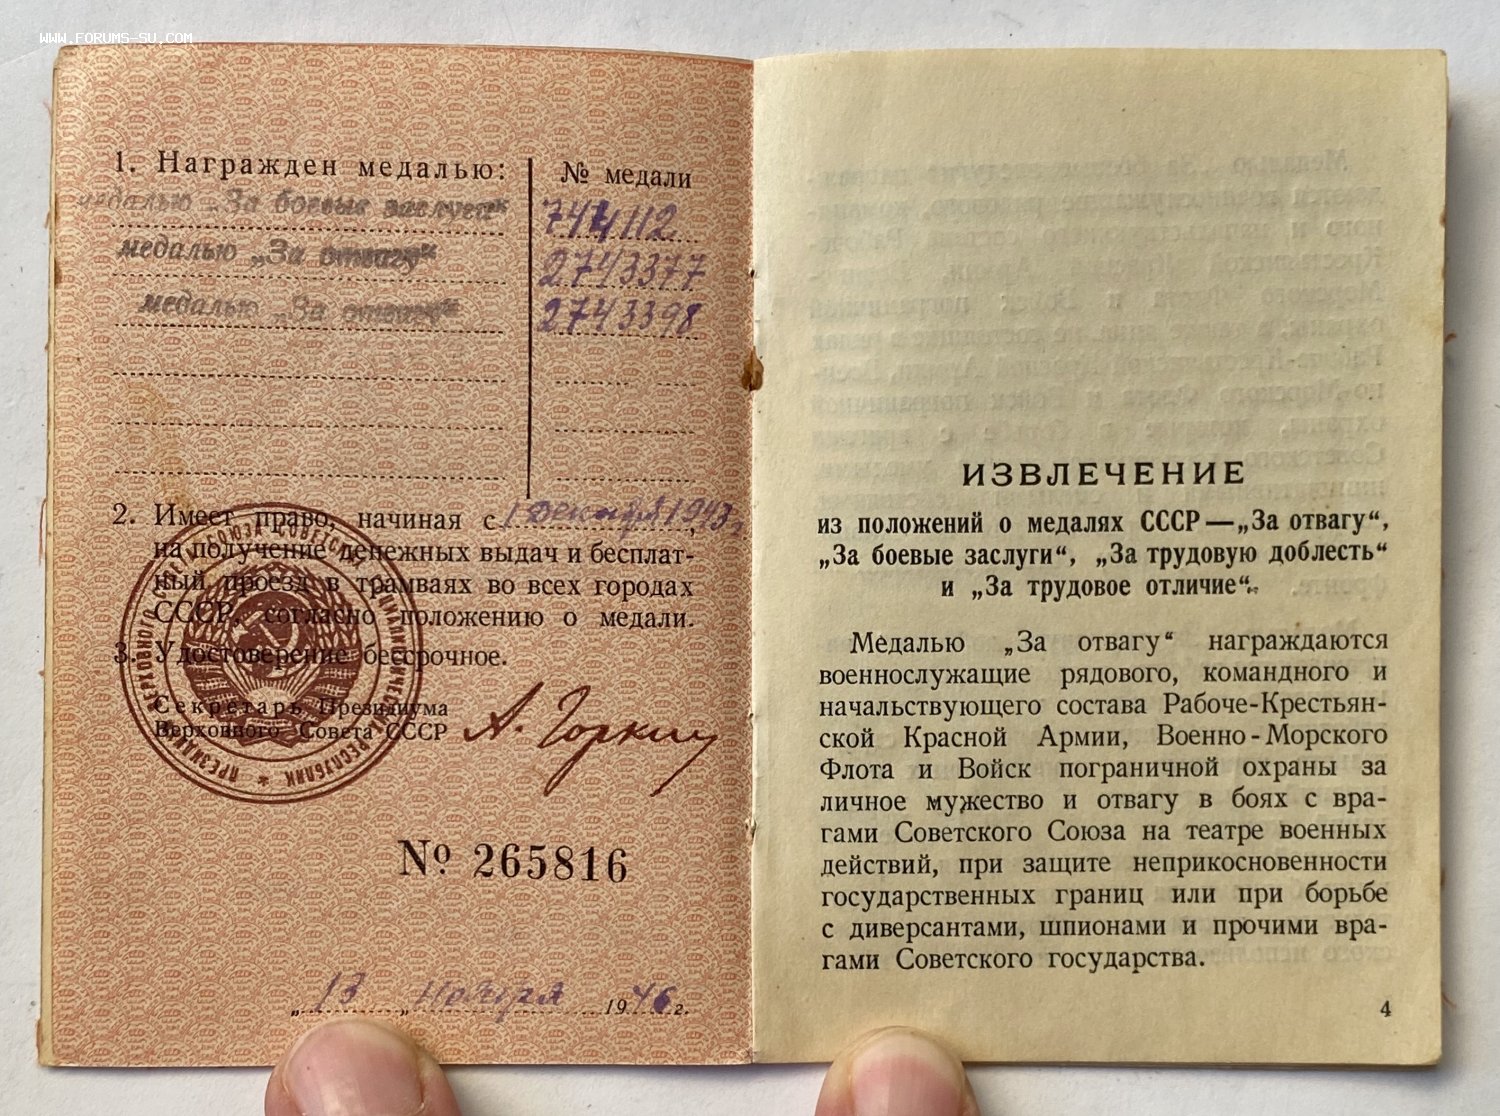 WWW.FORUMS-SU.COM
1. Награжден медалью:
№ медали
медалью „За боевые заслуги“
744112
медалью „За отвагу“
2743377
медалью „За отвагу“
2743398
2. Имеет право, начиная с 1 декабря 1943 г.,
на получение денежных выдач и бесплат-
ный проезд в трамваях во всех городах
СССР, согласно положению о медали.
3. Удостоверение бессрочное.
Секретарь Президиума
Верховного Совета СССР
А. Горкин
ПРЕЗИДИУМ ВЕРХОВНОГО СОВЕТА СОЮЗА СОВЕТСКИХ СОЦИАЛИСТИЧЕСКИХ РЕСПУБЛИК *
№ 265816
„13„ ноября 1946 г.
ИЗВЛЕЧЕНИЕ
из положений о медалях СССР — „За отвагу“,
„За боевые заслуги“, „За трудовую доблесть“
и „За трудовое отличие“.
Медалью „За отвагу“ награждаются
военнослужащие рядового, командного и
начальствующего состава Рабоче-Крестьян-
ской Красной Армии, Военно-Морского
Флота и Войск пограничной охраны за
личное мужество и отвагу в боях с вра-
гами Советского Союза на театре военных
действий, при защите неприкосновенности
государственных границ или при борьбе
с диверсантами, шпионами и прочими вра-
гами Советского государства.
4